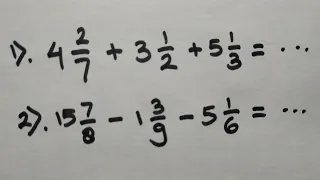 1). 4 2/7 + 3 1/2 + 5 1/3 = ...
2). 15 7/8 - 1 3/9 - 5 1/6 = ...